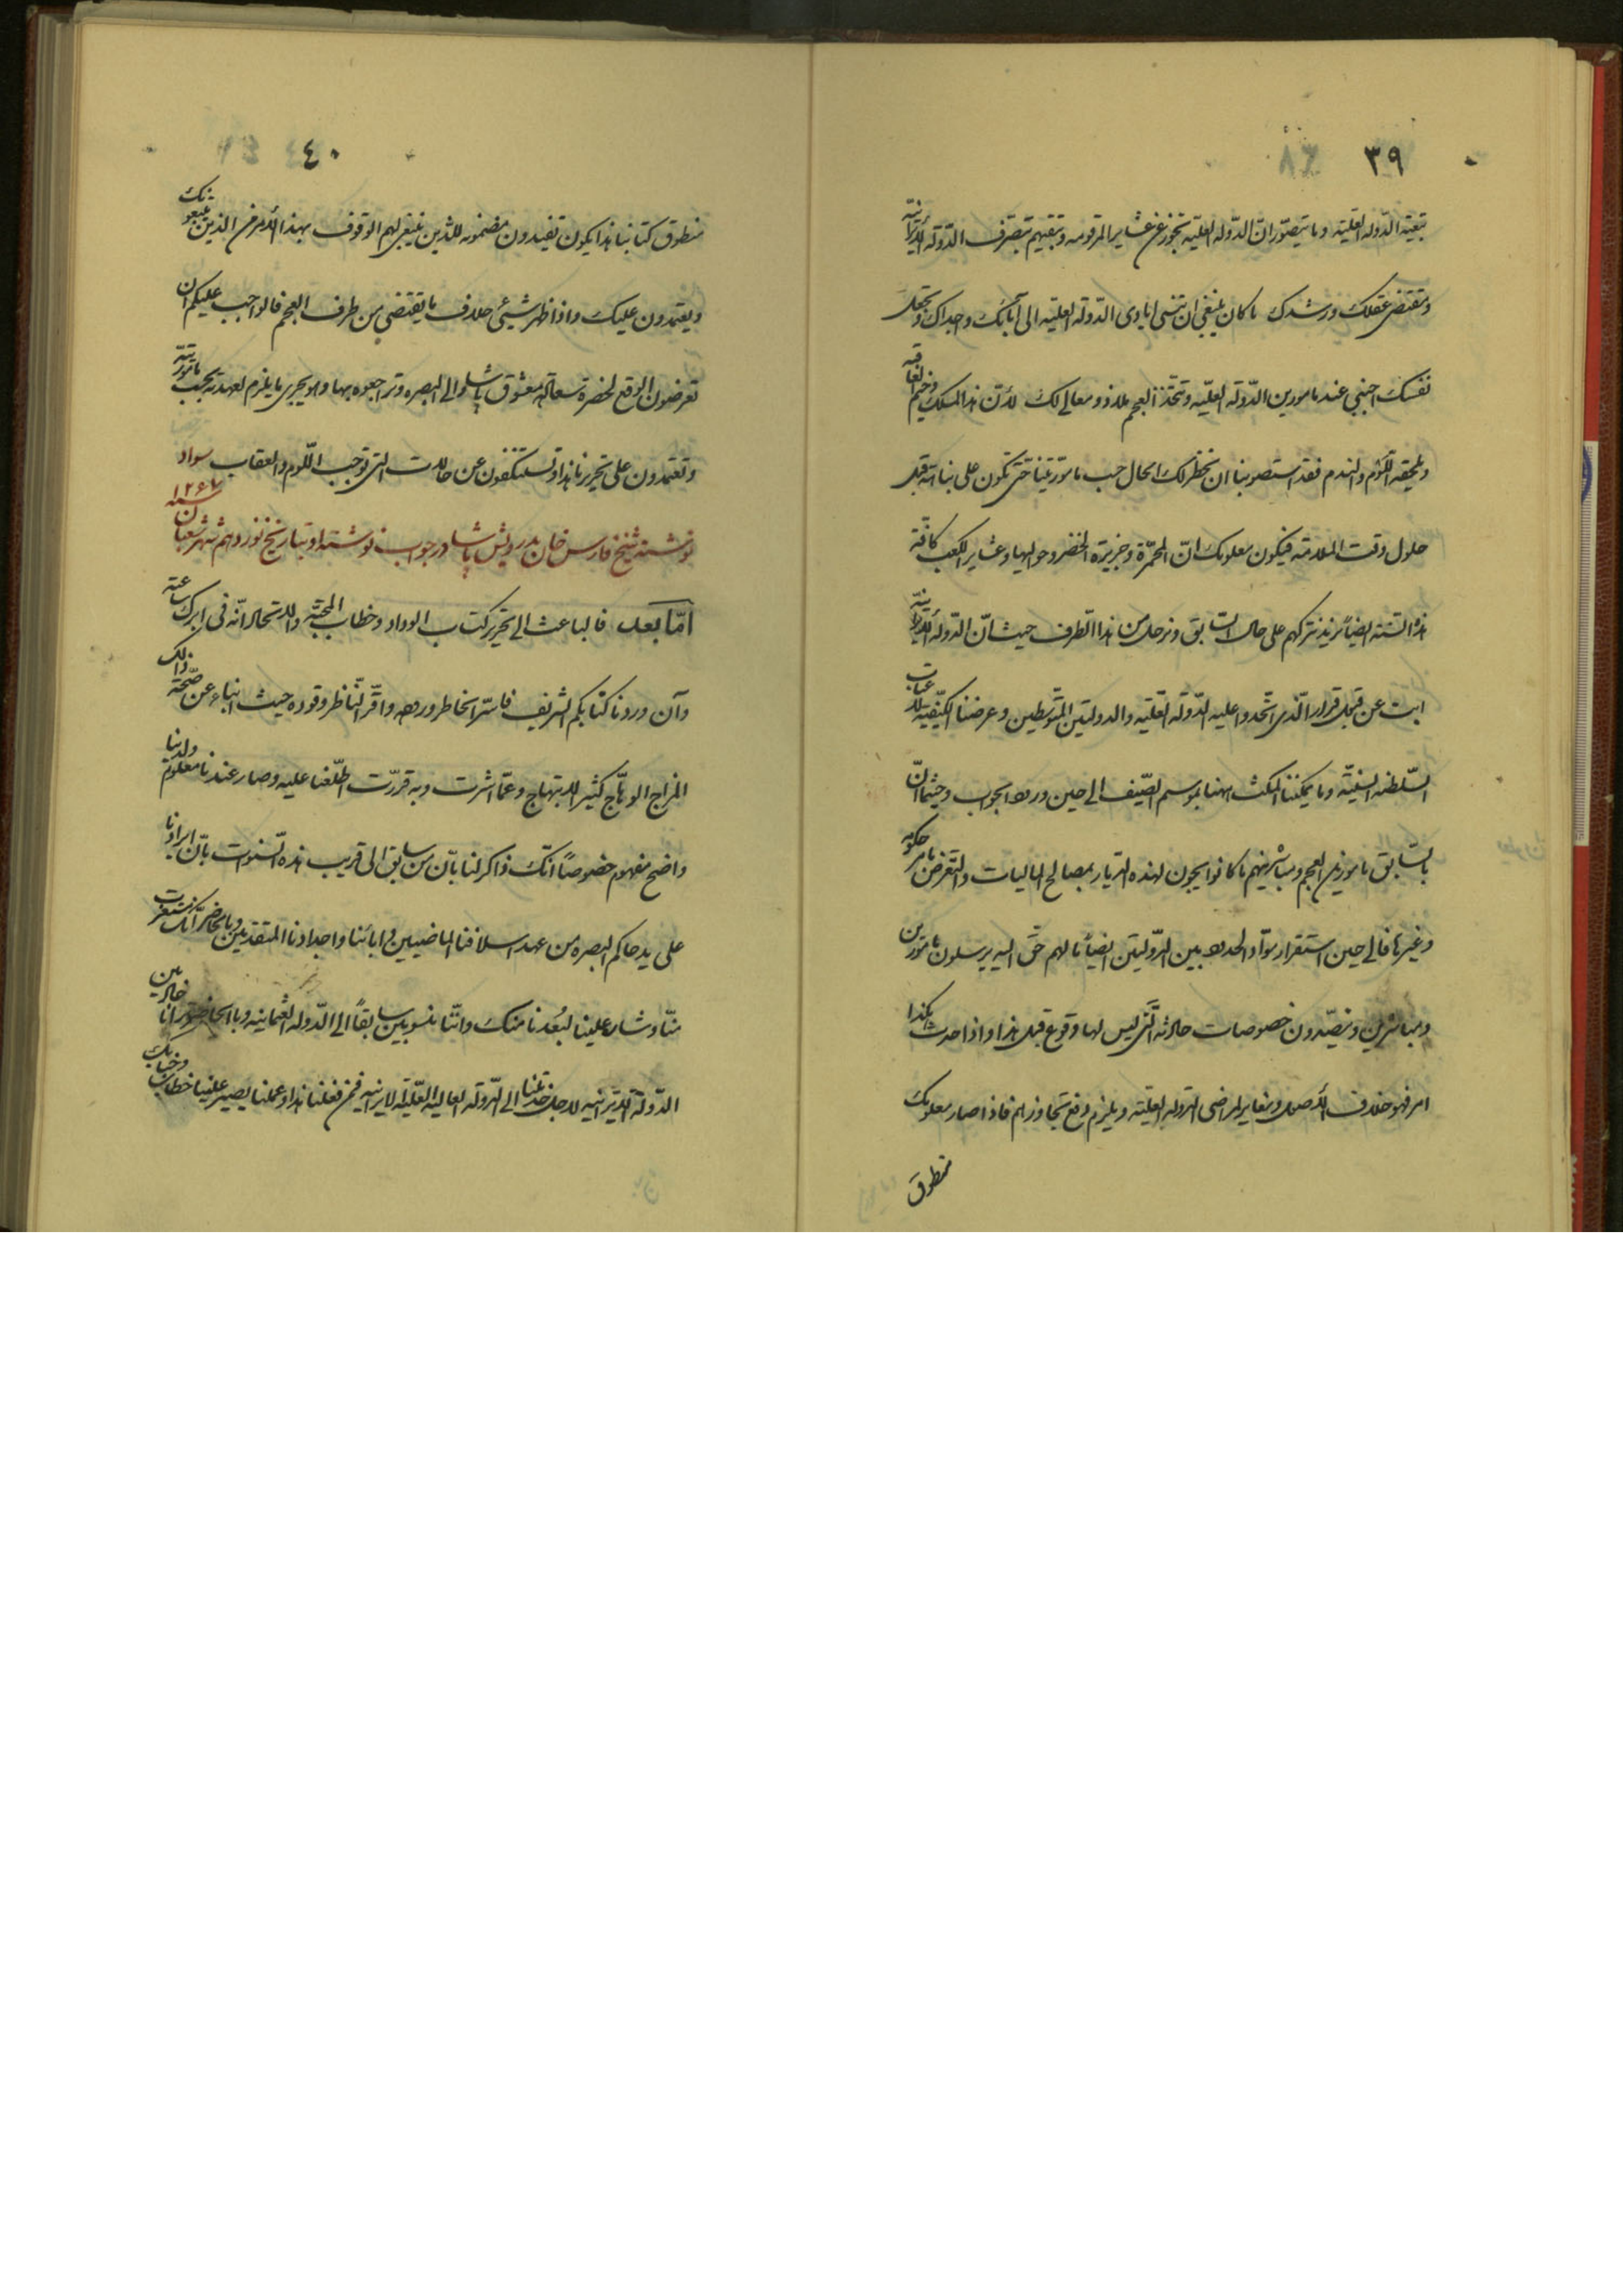 ٣٩
تبعية الدولة العلية وما يتصور ان الدولة العلية تجوز عن عشاير المرقومه وتبقيهم بتصرف الدولة الايرانية
ومقتضى عقلك ورشدك ما كان ينبغي ان تنسى ايادى الدولة العلية الى آبائك واجدادك وتجعل
نفسك اجنبي عند مامورين الدولة العلية وتتخذ العجم ملاذ ومعالى لك لأن هذا المسلك وخيم العاقبه
ويلحقه اللوم والندم فقد استصوبنا ان نخطر لك الحال حسب مأموريتنا حتى تكون على بناءته قبل
حلول وقت الملامة فيكون معلومك ان المحمرة وجزيرة الخضر وحواليها وعشاير الكعب كافة
هذه السنه ايضاً نريد نتركهم على حال السابق ونرحل من هذا الطرف حيث ان الدولة الايرانية
ابت عن قبول قرار الذى اتحدوا عليه الدولة العلية والدولتين المتوسطين وعرضنا الكيفية لاعتاب
السلطنه السنية وما يمكننا المكث ههنا بموسم الصيف الى حين ورود الجواب وحيثما ان
بالسابق مامورين العجم ومباشرينهم ما كانوا يجون لهذه الديار بمصالح الماليات والتعرض بامر حكومه
وغيرها فالى حين استقرار مواد الحدود بين الدولتين ايضاً ما لهم حق اليه يرسلون مأمورين
ومباشرين ويتصدون خصوصات حادثه التى ليس لها وقوع قبل هذا واذا حدث هكذا
امر فهو خلاف الأصول ومغاير لمراضى الدولة العلية ويلزم دفع تجاوزهم فاذا صار معلومك
منطوق
٤٠
منطوق كتابنا هذا يكون تفيدون مضمونه للذين ينبغى لهم الوقوف بهذا الأمر من الذين يتبعونك
ويعتمدون عليك واذا ظهر شيئ خلاف ما يقتضى من طرف العجم فالواجب عليكم ان
تعرضون الوقع لحضرة سعادتلو معشوق پاشا والى البصره وتراجعوه بها وهو يجرى ما يلزم لعهدته بحسب مأموريته
وتعتمدون على تحريرنا هذا وتستنكفون عن حالات التى توجب اللوم والعقاب سواد
نوشته شيخ فارس خان بدرويش پاشا در جواب نوشته او بتاريخ نوزدهم شهر شعبان سنه ١٢٦٦
اما بعد فالباعث الى تحرير كتاب الوداد وخطاب المحبة والاتحاد انه فى ابرك ساعته
وآن وردنا كتابكم الشريف فاستر الخاطر وروده واقر الناظر وقوده حيث انباء عن صحة ذلك
المزاج الوهاج كثير الابتهاج وعما اشرت وبه قررت اطلعنا عليه وصار عندنا معلوم ولدينا
واضح مفهوم خصوصاً انك ذاكر لنا بأن من سابق الى قريب هذه السنوات بأن ايرادنا
على يد حاكم البصره من عهد اسلافنا الماضيين وابائنا واجدادنا المتقدمين وبالحاضر انك استغربت
منا وشار علينا لبعدنا منك واننا منسوبين سابقاً الى الدولة العثمانيه وبالحاضر ترانا خادمين
الدولة الايرانيه لاجل خدمتنا الى الدولة العاليه العلية الايرانيه فمن فعلنا هذا وعملنا يصير علينا خطاب وجنابك